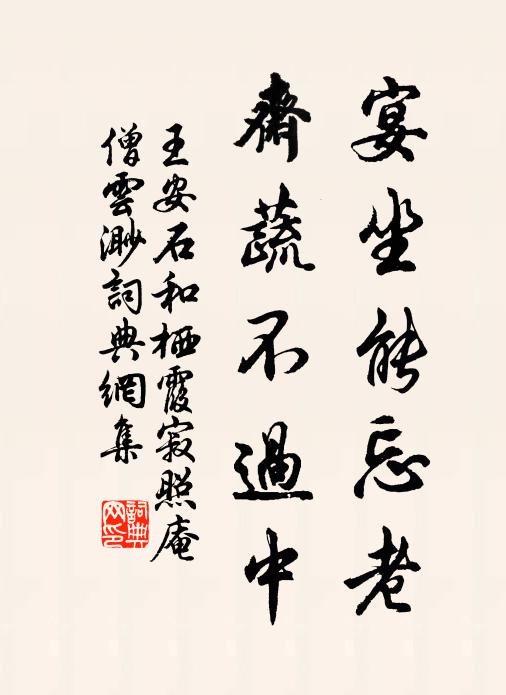 宴坐能忘老
齋蔬不過中
王安石和栖霞寂照庵
僧雲渺詞典網集
詞典网印